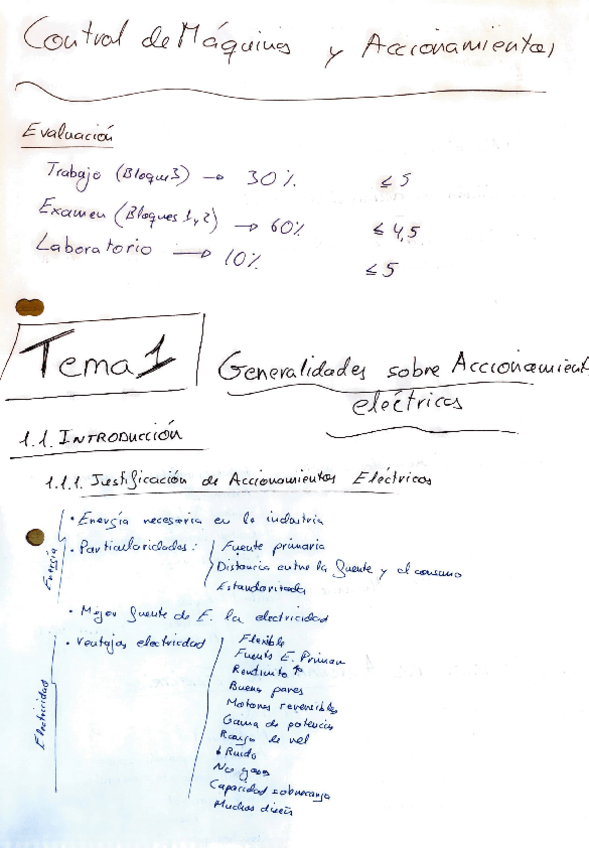 Control de Máquinas y Accionamientos
Evaluación
Trabajo (Bloque 3) → 30% ≤ 5
Examen (Bloques 1 y 2) → 60% ≤ 4,5
Laboratorio → 10% ≤ 5
Tema 1 Generalidades sobre Accionamient
eléctricos
1.1. INTRODUCCIÓN
1.1.1. Justificación de Accionamientos Eléctricos
Energía
· Energía necesaria en la industria
· Particularidades: Fuente primaria
Distancia entre la fuente y el consumo
Estandarizada
· Mejor fuente de E. la electricidad
Electricidad
· Ventajas electricidad Flexible
Fuente E. Primar
Rendimiento ↑
Buenos pares
Motores reversibles
Gama de potencias
Rango de vel
↓ Ruido
No gases
Capacidad sobrecarga
Muchos diseñ